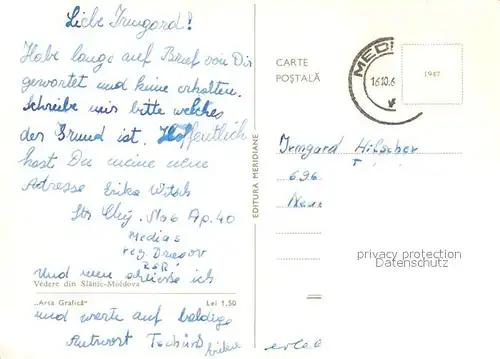 Liebe Irmgard!
Habe lange auf Brief von Dir
gewartet und keine erhalten.
Schreibe mir bitte welches
der Grund ist. Hoffentlich
hast Du meine neue
Adresse Erika Witsch
Str Cluj. No 6 Ap. 40
Medias
reg.
Und nun schliesse ich
Vedere din Slănic-Moldova
„Arta Grafică“ Lei 1,50
und warte auf baldige
Antwort Tschüß
EDITURA MERIDIANE
CARTE
POȘTALĂ
MEDI
16.10.6
1947
Irmgard Hilscher
696
privacy protection
Datenschutz